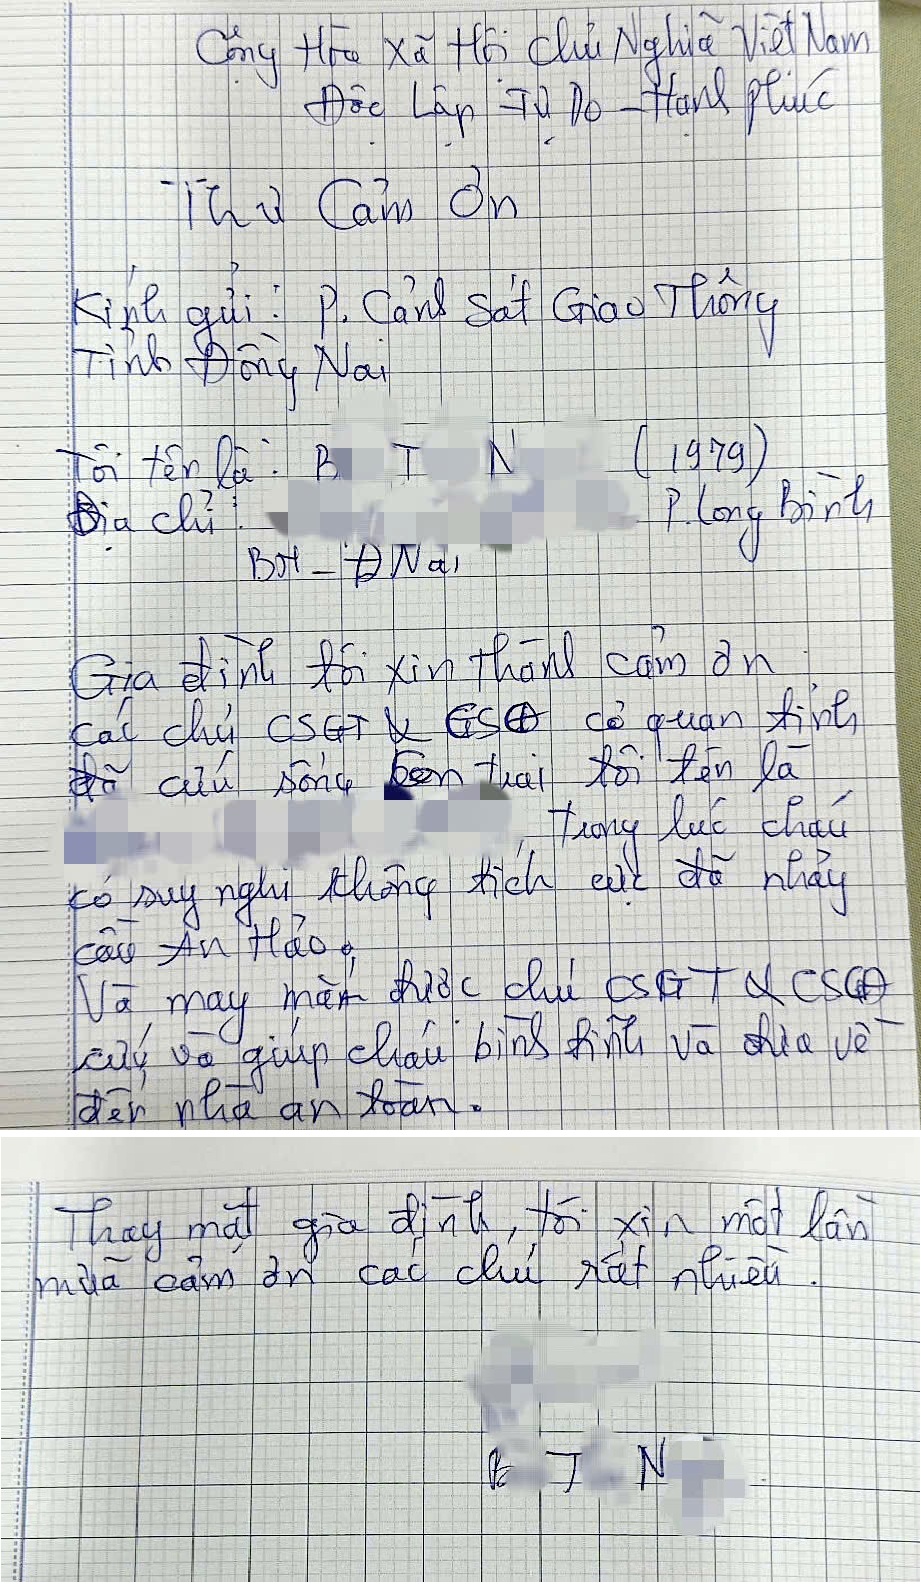 Cộng Hòa Xã Hội Chủ Nghĩa Việt Nam
Độc Lập - Tự Do - Hạnh phúc
Thư Cảm Ơn
Kính gửi: P. Cảnh Sát Giao Thông
Tỉnh Đồng Nai
Tôi tên là: B T N (1979)
Địa chỉ: P. Long Bình
BH - Đ Nai
Gia đình tôi xin thành cảm ơn
các chú CSGT & CSCĐ cơ quan tỉnh
đã cứu sống con trai tôi tên là
, trong lúc cháu
có suy nghĩ không tích cực đã nhảy
cầu An Hảo.
Và may mắn được chú CSGT & CSCĐ
cứu và giúp cháu bình tĩnh và đưa về
đến nhà an toàn.
Thay mặt gia đình, tôi xin một lần
nữa cảm ơn các chú rất nhiều.
B T N